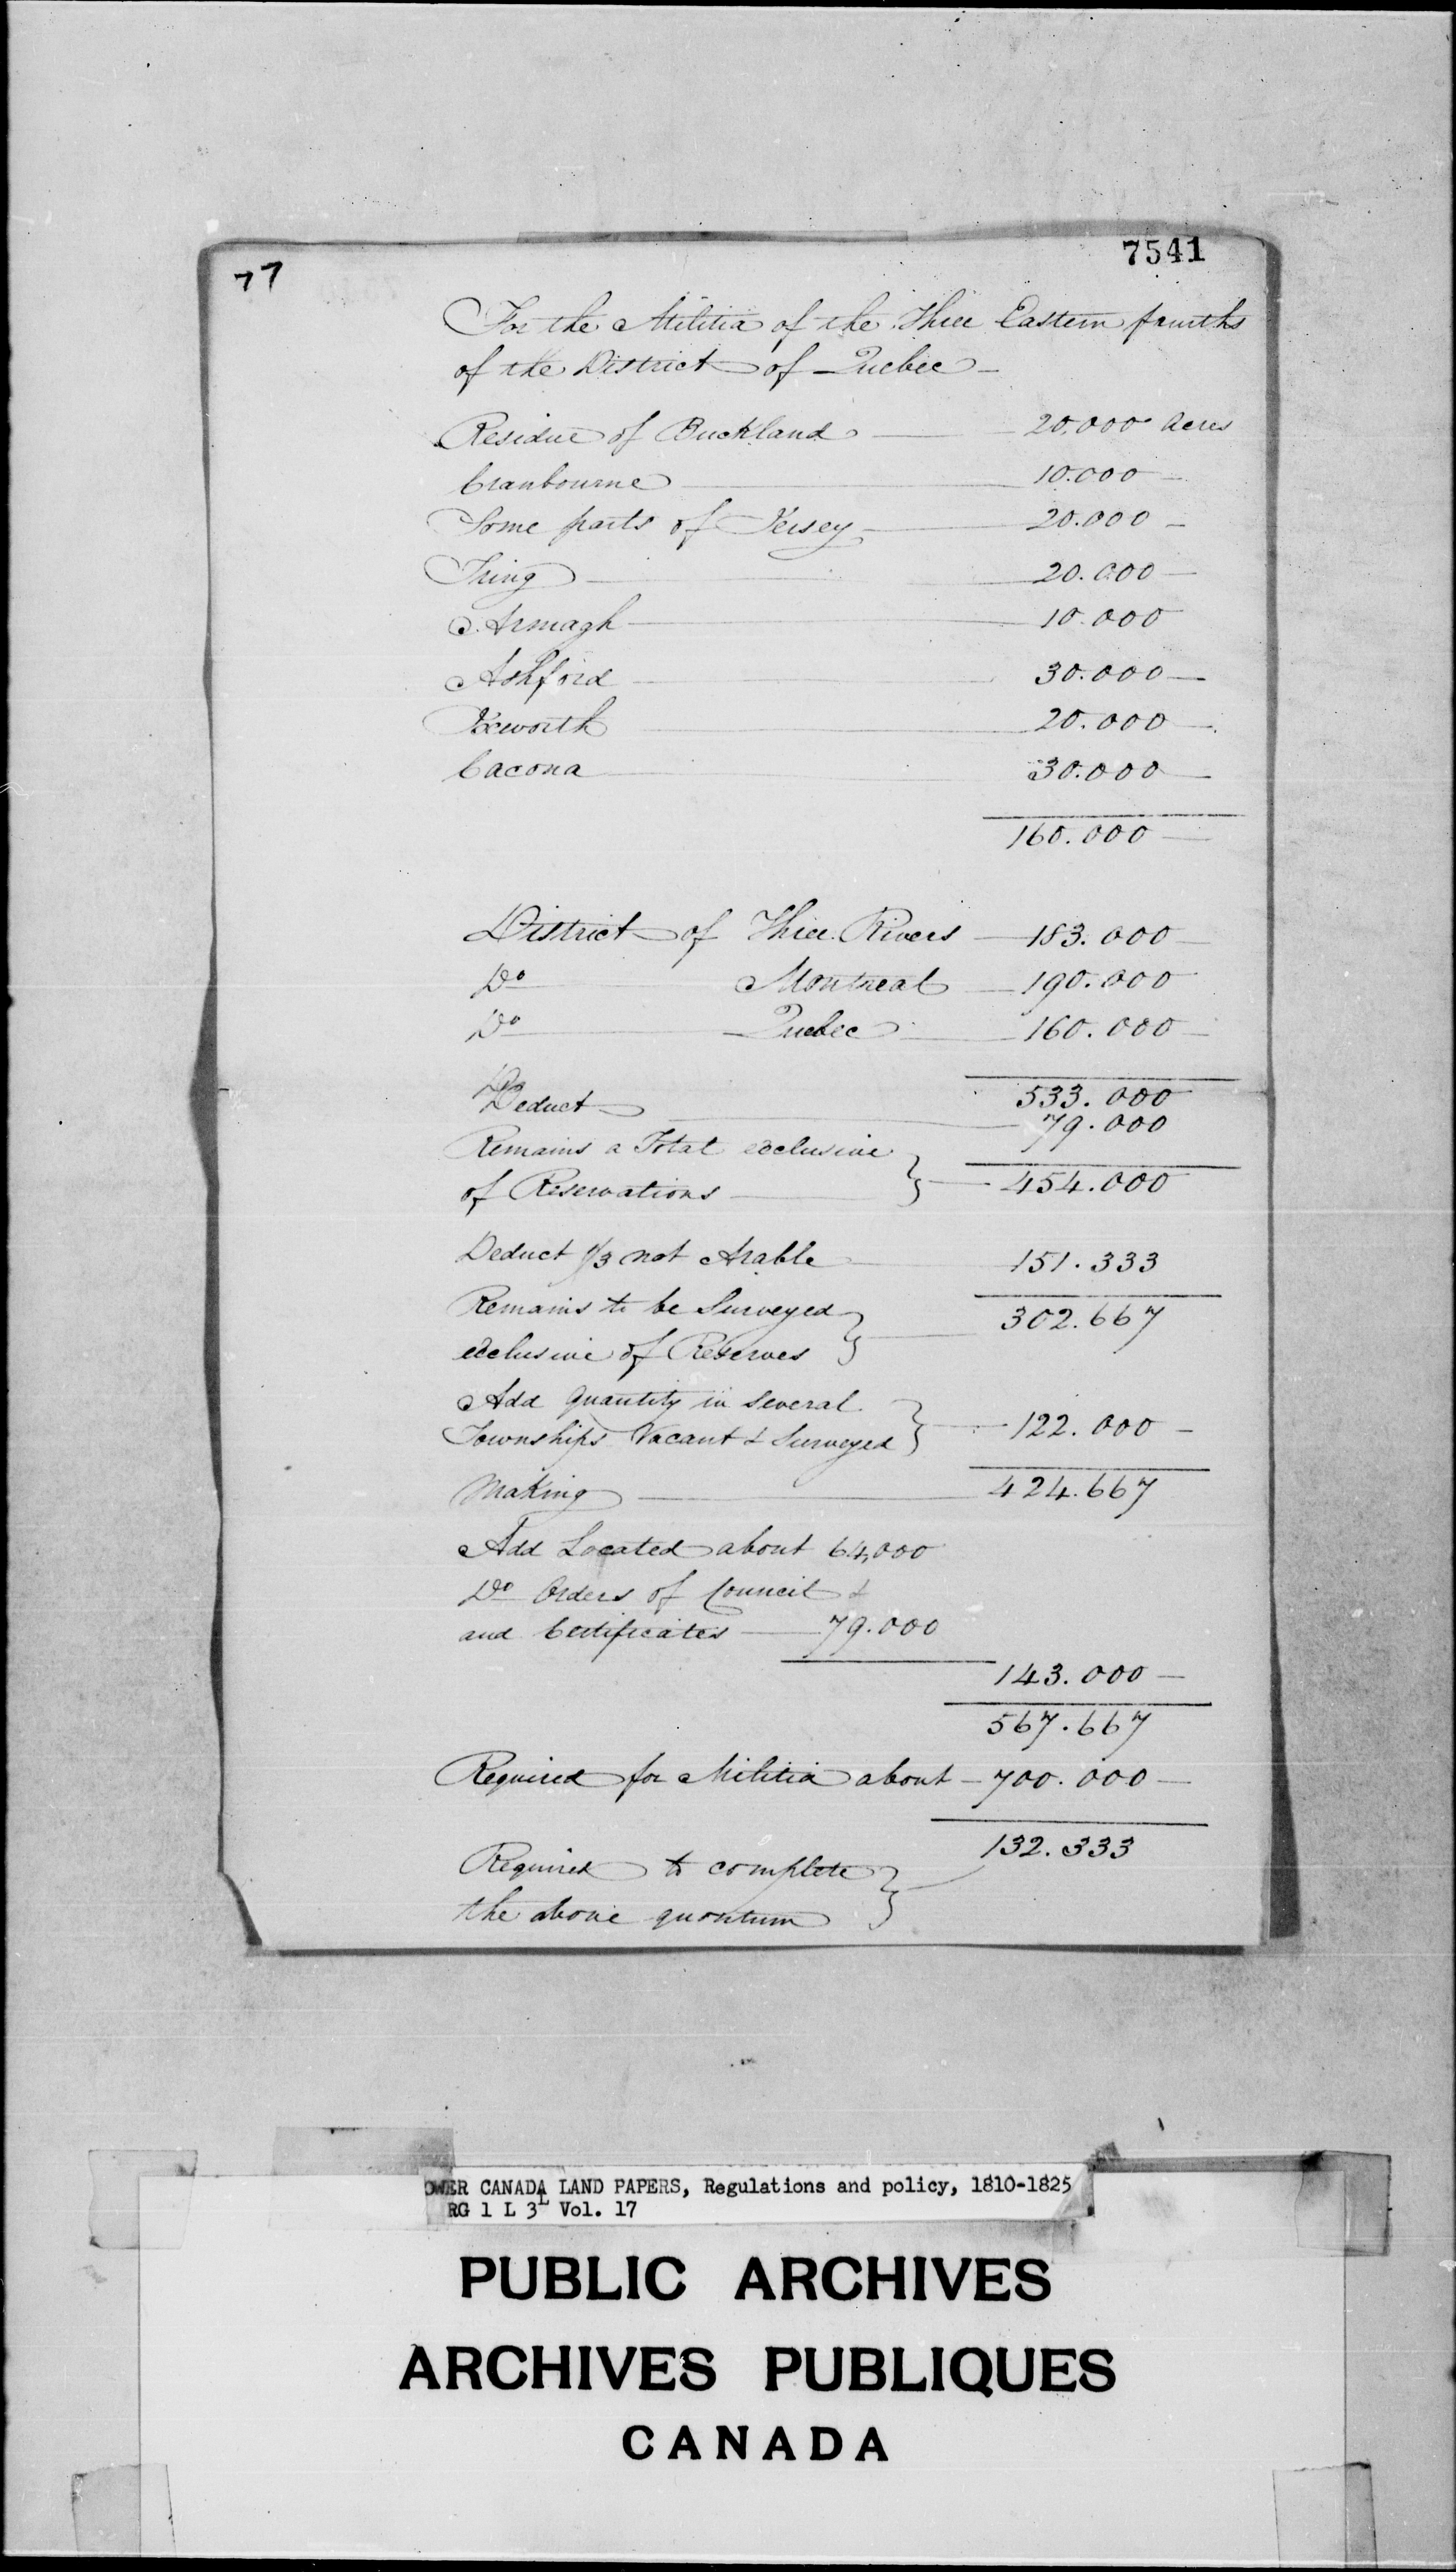 7541
77
For the Militia of the Three Eastern fourths
of the District of Quebec -
Residue of Buckland — 20.000 Acres
Cranbourne — 10.000 —
Some parts of Jersey — 20.000 —
Tring — 20.000 —
Armagh — 10.000
Ashford — 30.000 —
Ixworth — 20.000 —
Cacona — 30.000 —
160.000 —
District of Three Rivers — 183.000 —
Do Montreal — 190.000
Do — Quebec — 160.000 —
533.000
Deduct — 79.000
Remains a Total exclusive
of Reservations — } — 454.000
Deduct 1/3 not Arable — 151.333
Remains to be Surveyed } — 302.667
exclusive of Reserves
Add Quantity in several
Townships Vacant & Surveyed } — 122.000 —
Making — 424.667
Add Located about 64,000
Do Orders of Council &
and Certificates — 79.000
143.000 —
567.667
Required for Militia about — 700.000 —
132.333
Required to complete }
the above quontum
OWER CANADA LAND PAPERS, Regulations and policy, 1810-1825
RG 1 L 3L Vol. 17
PUBLIC ARCHIVES
ARCHIVES PUBLIQUES
CANADA